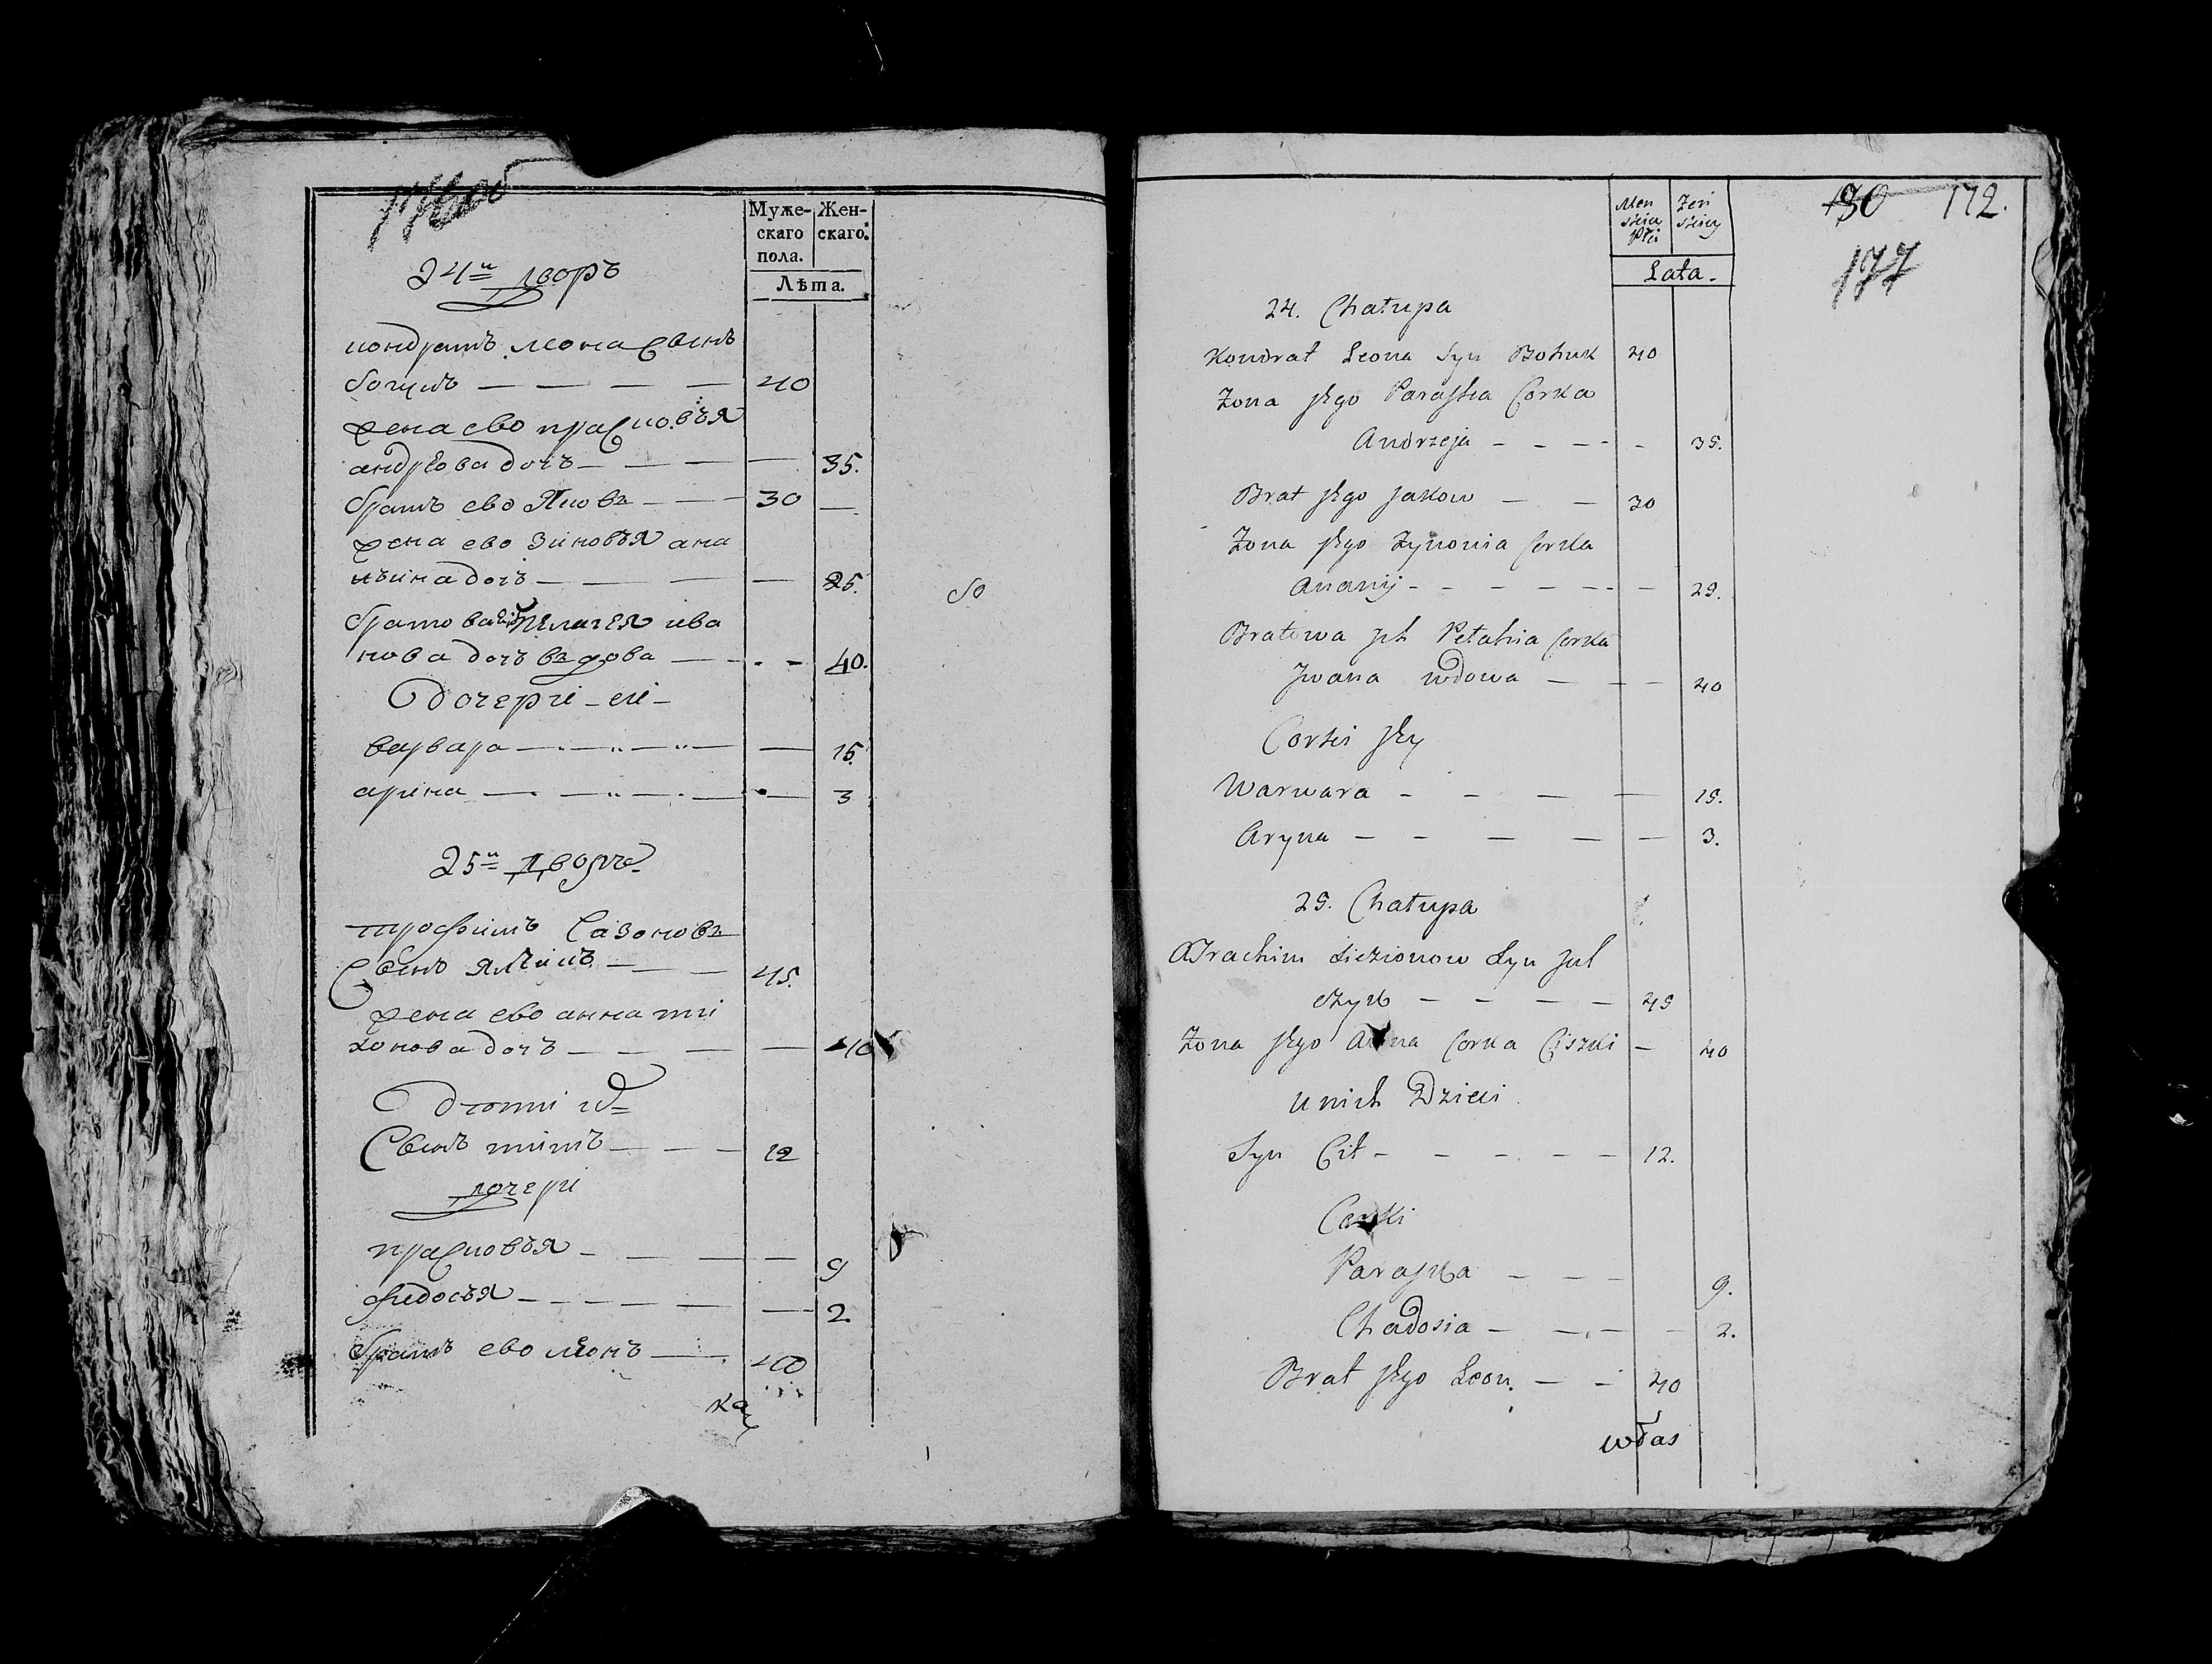 Муже-
скаго
пола.
Жен-
скаго.
Лѣта.
24й дворъ
кондратъ леона сынъ
богукъ — — — — 40
жена ево прасковъя
андрѣова дочъ — — — — 35.
братъ ево Яковъ — — 30 —
жена ево Зиновъя ана
нъина дочъ — — — — 25.
братова их пелагея ива
нова дочъ вдова — - - 40.
дочерги еи
варвара — — — — 15.
арина — — — — 3
25й дворъ
трофимъ Сазоновъ
Сынъ — — 45.
жена ево анна ти
хонова дочъ — — — — 40
Сынъ титъ — — — 12
дочери
прасковъя — — — — 9
фидосъя — — — — 2.
братъ ево леонъ — — 40
Men
skiey
Płci
Żeń
skiey
Lata.
130 172.
177
24. Chałupa
Kondrat Leona Syn Bohuk 40
Żona Jego Paraska Corka
Andrzeja - - - - - 35.
Brat Jego Jakow — — 30
Żona Jego Zynowia Corka
Ananij - - - - - - 25.
Bratowa Jch Pełahia Corka
Jwana wdowa — — — 40
Corki Jey
Warwara - - — — 15.
Aryna — - — — — 3.
25. Chałupa
Trachim Syn Jal
— — — — 45
Żona Jego Anna Corka Ciszki — 40
u nich Dzieci
Syn Cit - - - - — 12.
Corki
Paraska — - - 9.
Chadosia — — — - 2.
Brat Jego Leon. — - 40
włas